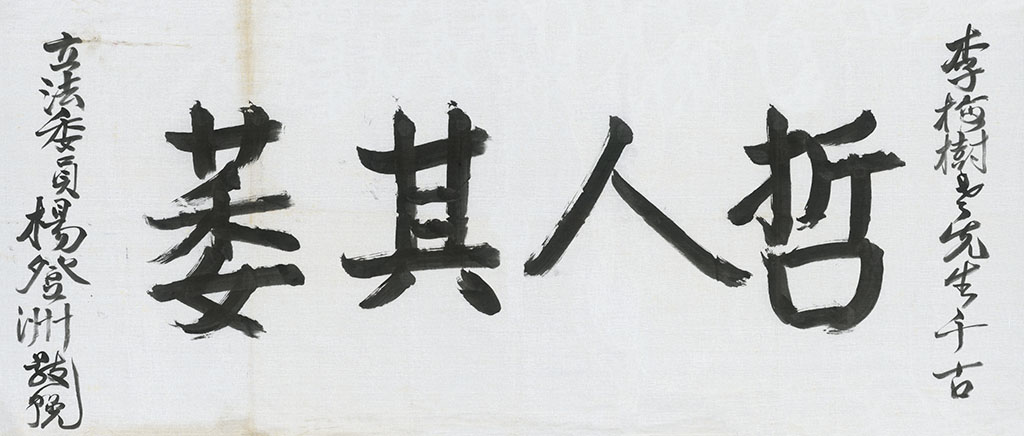 李梅樹老先生千古
哲人其萎
立法委員楊登洲敬輓